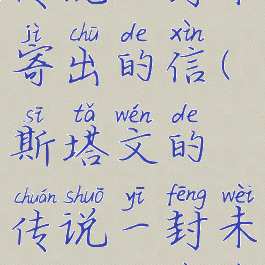 jì chū de xìn
寄出的信(
sī tǎ wén de
斯塔文的
chuán shuō yī fēng wèi
传说一封未